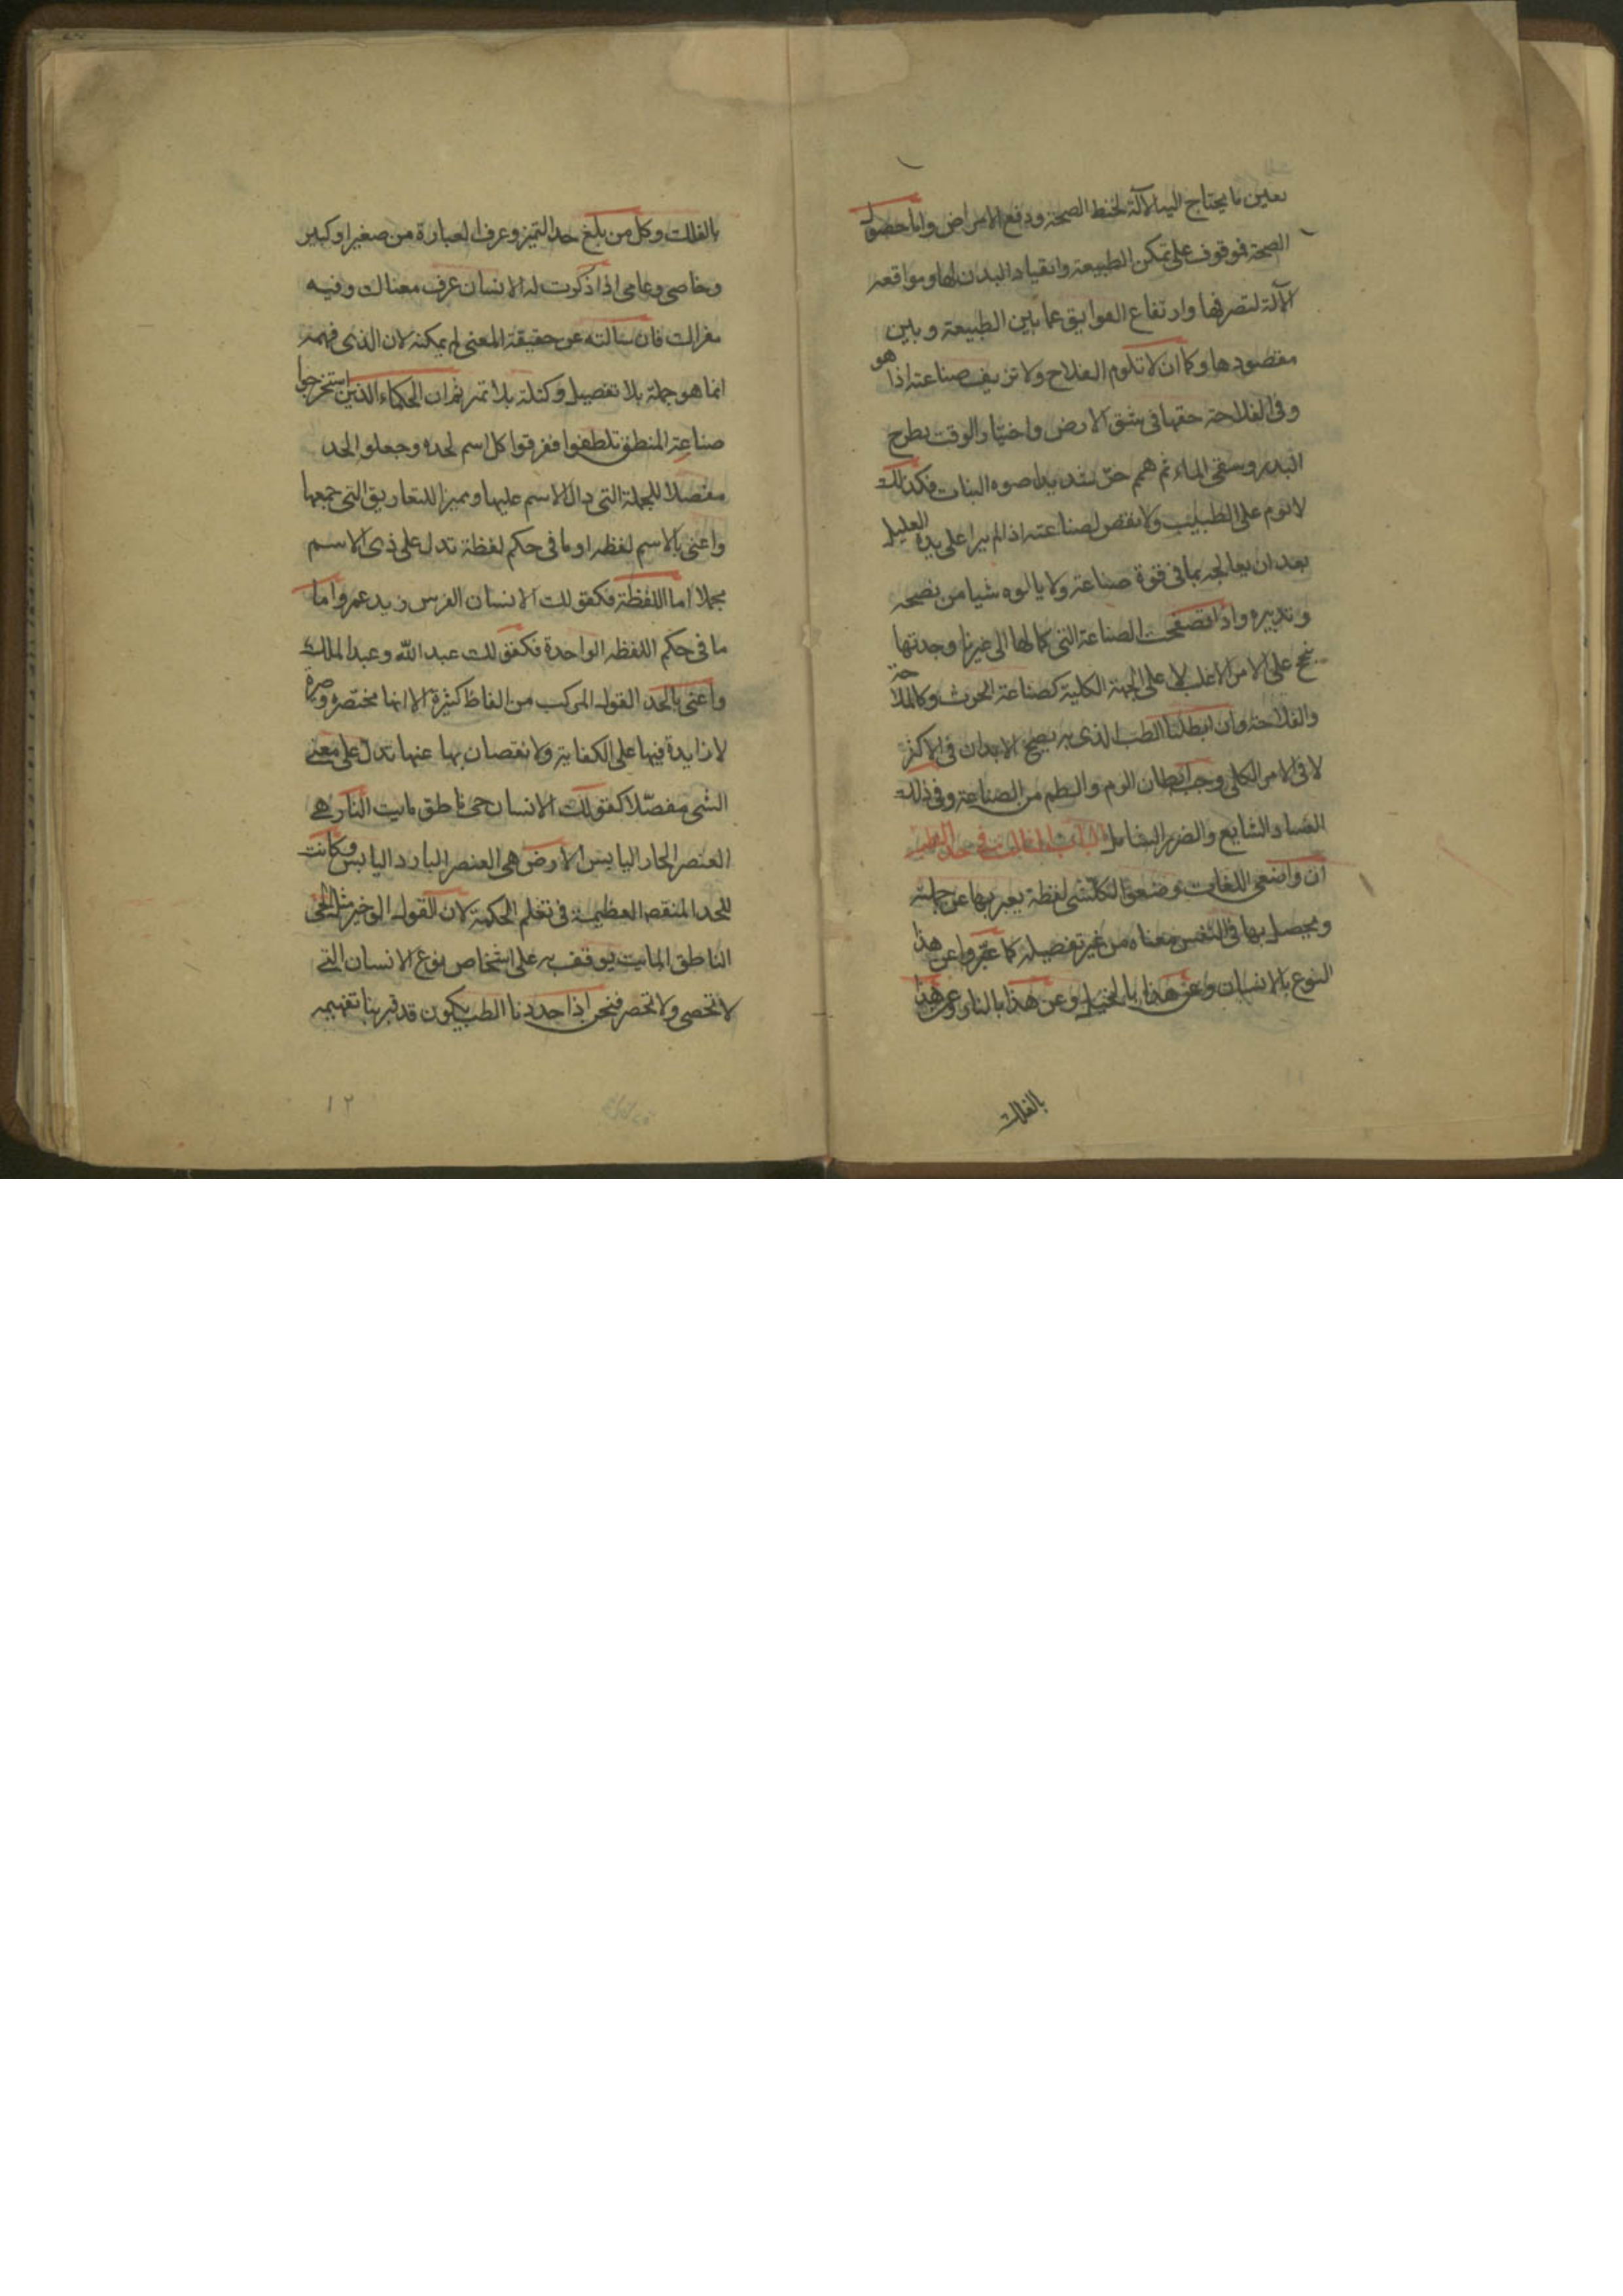 تعين ما يحتاج اليه الآلة لحفظ الصحة ودفع الامراض واما حصول
الصحة فموقوف على تمكن الطبيعة وانقياد البدن لها ومواقعه
الآلة لتصرفها وارتفاع العوايق عما بين الطبيعة وبين
مقصودها وكما ان لا تلوم الفلاح ولا تزيف صناعته اذا هو
وفى الفلاحة حقها فى شق الارض واختيار الوقت بطرح
البذر وسقى الماء ثم هجم حر شديد النبات فكذلك
لا لوم على الطبيب ولا نقص لصناعته اذا لم يبرا على يده العليل
بعد ان يعالجه بما فى قوة صناعته ولا يالوه شيا من نصحه
وتدبيره واذا تصفحت الصناعة التى كمالها الى غيرنا وجدتها
تنجح على الامر الاغلب لا على الجهة الكلية كصناعة الحرث وكالملاحة
والفلاحة وان ابطلنا الطب الذى به تصح الابدان فى الاكثر
لا فى الامر الكلى وجب ابطال من الصناعة وفى ذلك
الفساد الشايع والضرر الشامل الباب الثالث فى حد الطب
ان واضعى اللغات وضعوا لكل شى لفظة يعبر بها عن جملته
ويحصل بها فى النفس معناه من غير تفصيله كما عبروا عن هذا
النوع بالانسان وعن هذا بالخيل وعن هذا بالنار وعن هذا
بالفلك
بالفلك وكل من بلغ حد التميز وعرف العبارة من صغير او كبير
وخاصى وعامى اذا ذكرت له الانسان عرف معناك وفيه
مغزاك فان سالته عن حقيقة المعنى لم يمكنه لان الذى فهمه
انما هو جملة بلا تفصيل وكتلة بلا تمر ثم ان الحكماء الذين استخرجوا
صناعة المنطق تلطفوا ففرقوا كل اسم لحده وجعلوا الحد
مفصلا للجملة التى دال الاسم عليها ومميزا للتعاريق التى جمعها
واعنى بالاسم لفظه او ما فى حكم لفظة تدل على ذى الاسم
مجملا اما اللفظة فكقولك الانسان الفرس زيد عمر واما
ما فى حكم اللفظه الواحدة فكقولك عبد الله وعبد الملك
واعنى بالحد القول المركب من الفاظ كثيرة الا انها مختصره
لا زايدة فيها على الكفاية ولا نقصان بها عنها تدل على معنى
الشى مفصلا كقولك الانسان حى ناطق مايت النار هى
العنصر الحار اليابس الارض هى العنصر البارد اليابس وكانت
للحد المنقعه العظيمة فى تعلم الحكمة لان القول الوخيز مثل الحى
الناطق المايت يوقف به على اشخاص نوع الانسان التى
لا تحصى ولا تحصر فنحن اذا حددنا الطب يكون قد قربنا تفهيمه
١٢